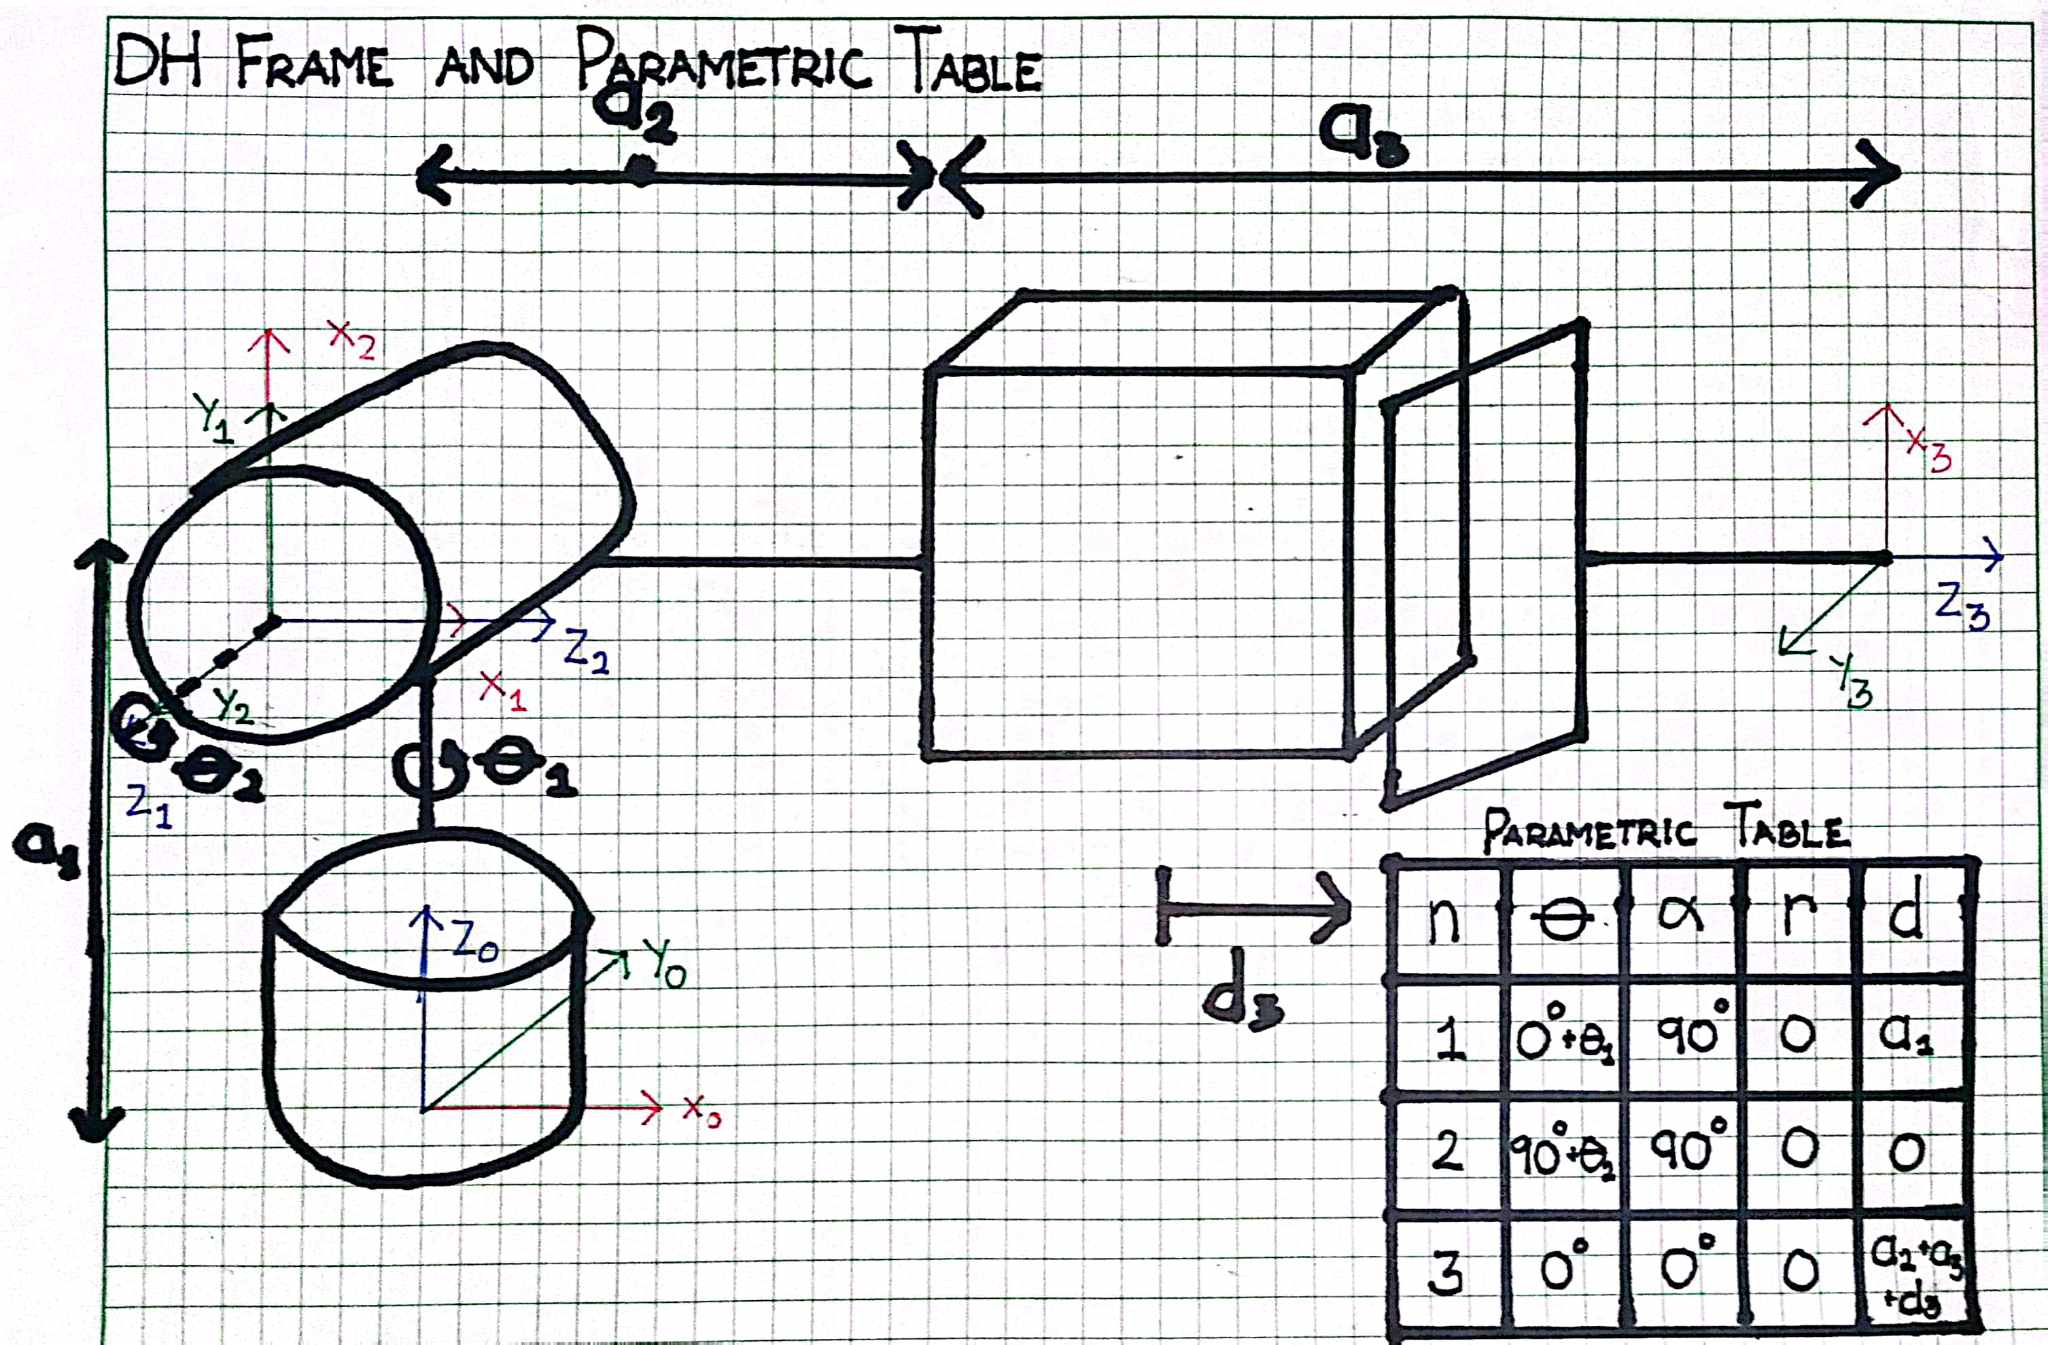 DH FRAME AND PARAMETRIC TABLE
a2
a3
X2
Y1
X3
Z3
Y3
Z2
X1
Y2
θ2
θ1
Z1
a1
Z0
Y0
X0
d3
PARAMETRIC TABLE
n θ α r d
1 0°+θ1 90° 0 a1
2 90°+θ2 90° 0 0
3 0° 0° 0 a2+a3
+d3